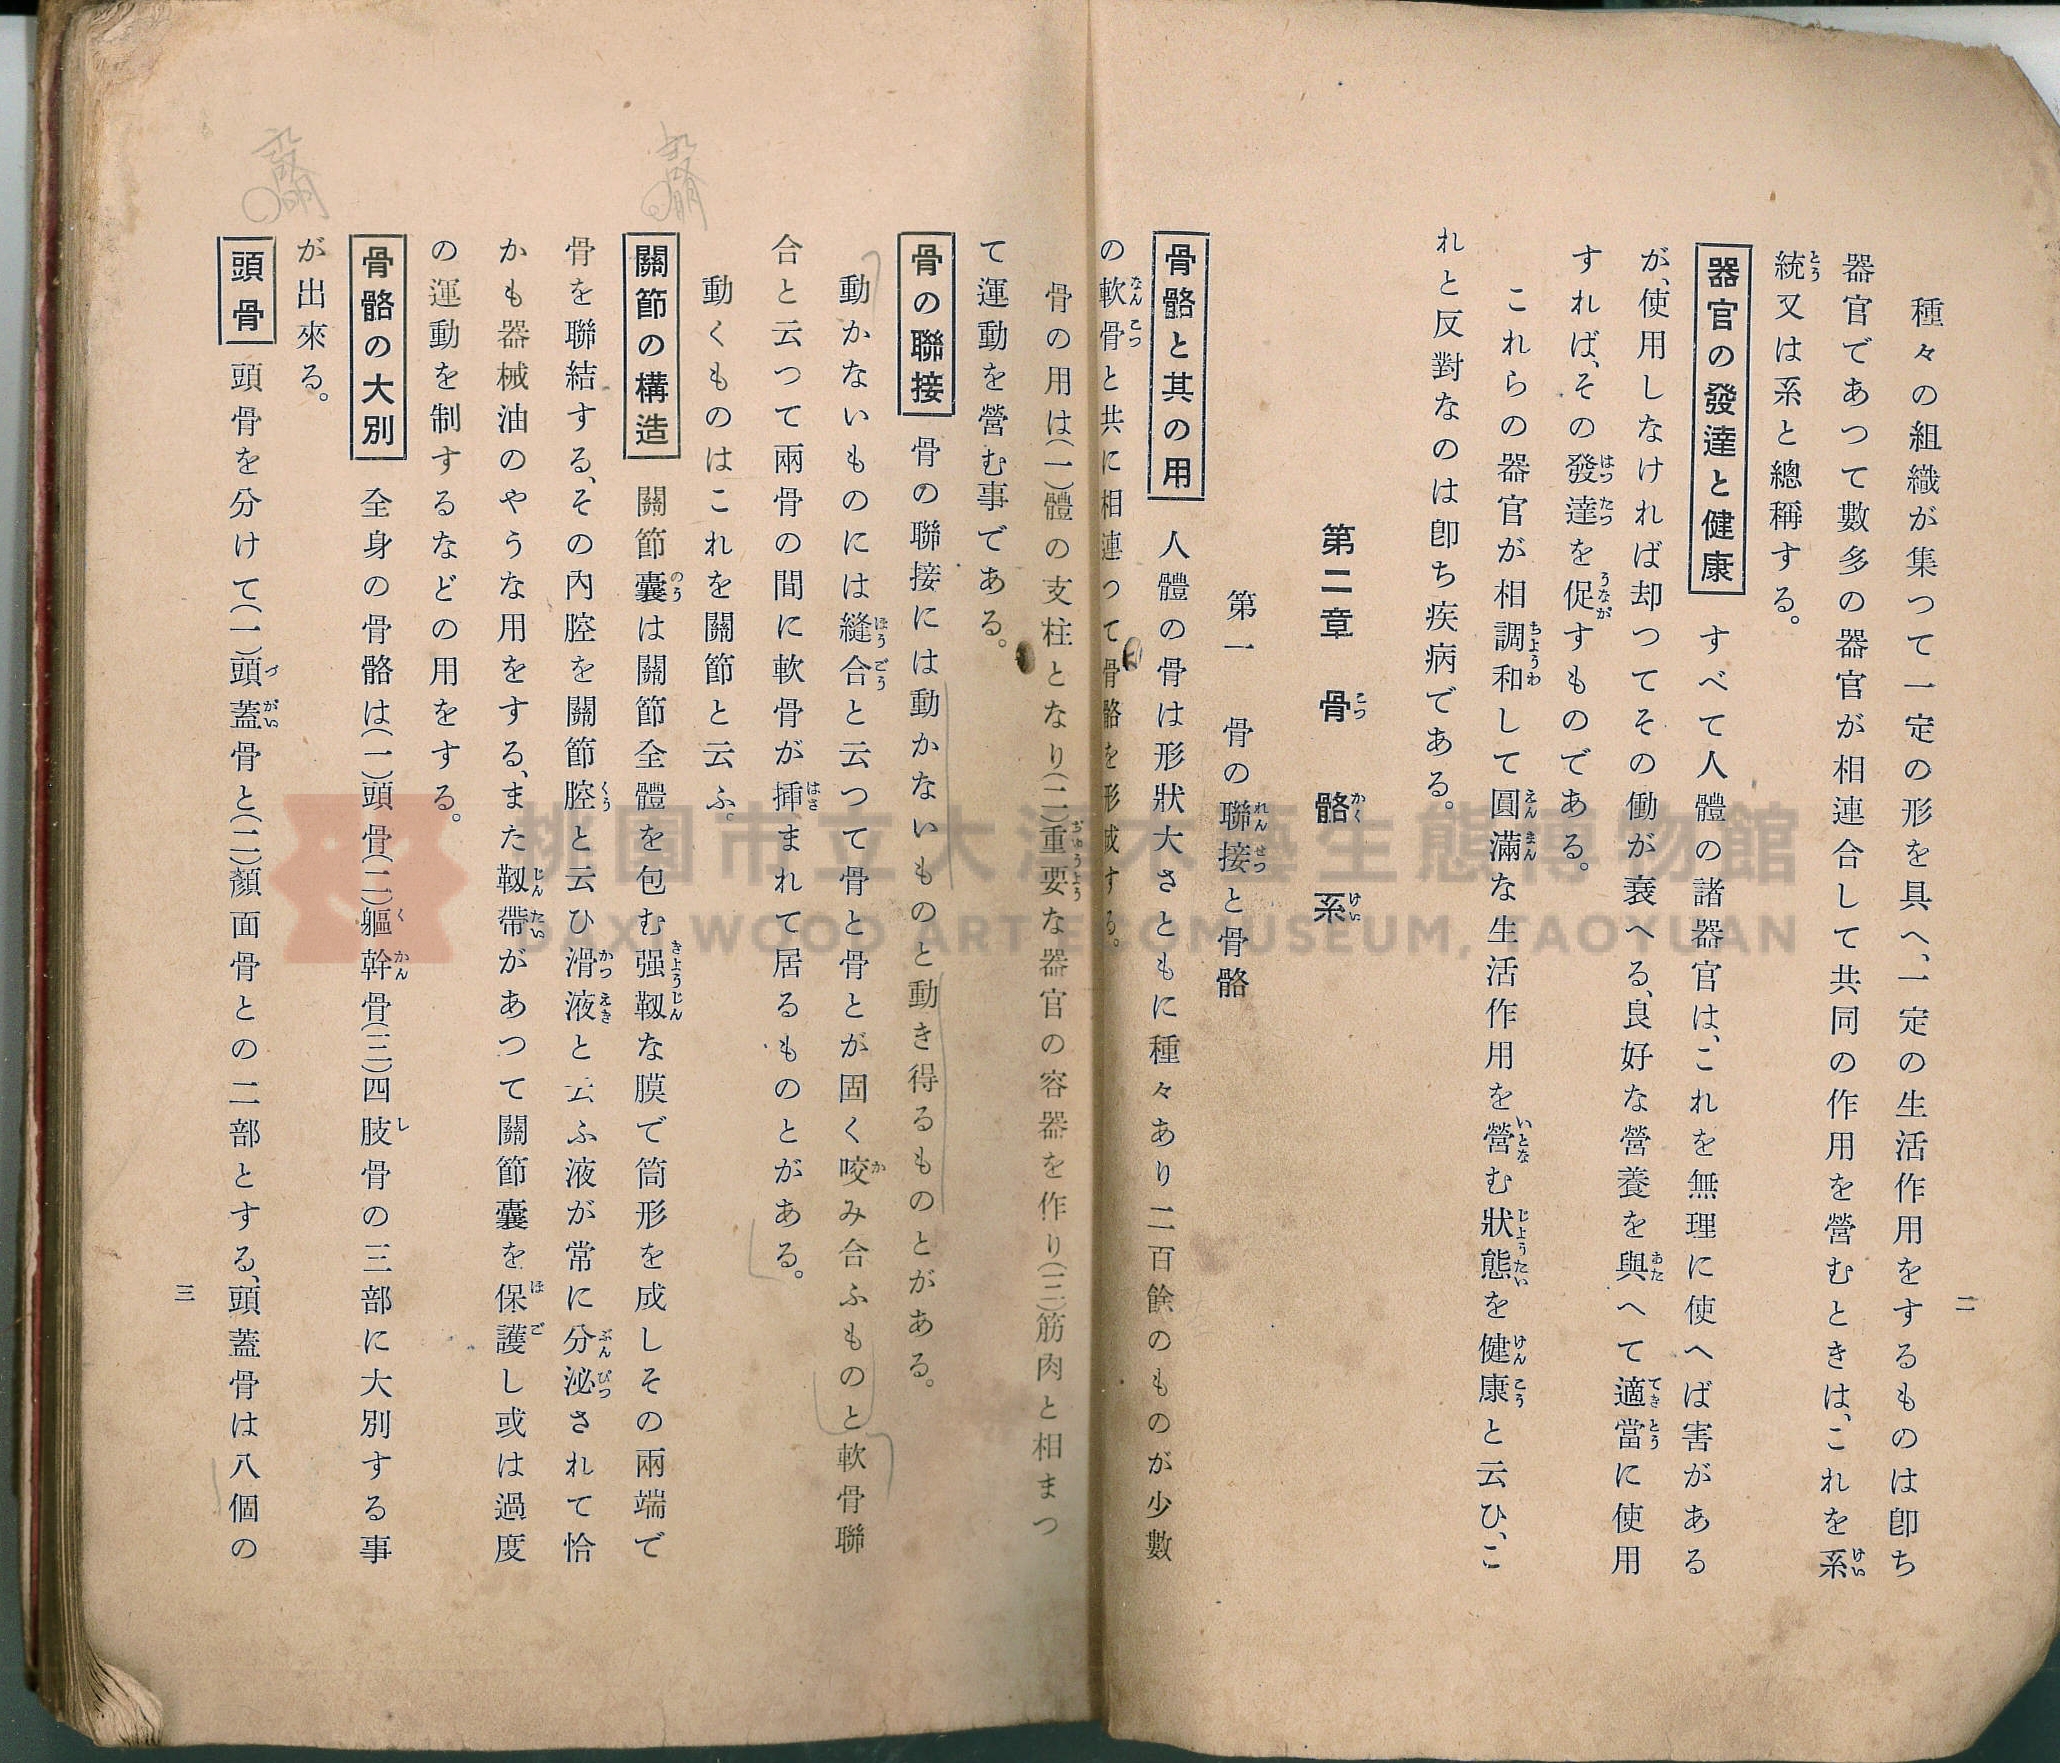 二
種々の組織が集つて一定の形を具へ、一定の生活作用をするものは卽ち
器官であつて數多の器官が相連合して共同の作用を營むときは、これを系
統又は系と總稱する。
器官の發達と健康 すべて人體の諸器官は、これを無理に使へば害がある
が、使用しなければ却つてその働が衰へる、良好な營養を與へて適當に使用
すれば、その發達を促すものである。
これらの器官が相調和して圓滿な生活作用を營む狀態を健康と云ひ、こ
れと反對なのは卽ち疾病である。
第二章 骨骼系
第一 骨の聯接と骨骼
骨骼と其の用 人體の骨は形狀大さともに種々あり二百餘のものが少數
の軟骨と共に相連つて骨骼を形成する。
骨の用は(一)體の支柱となり(二)重要な器官の容器を作り(三)筋肉と相まつ
て運動を營む事である。
骨の聯接 骨の聯接には動かないものと動き得るものとがある。
動かないものには縫合と云つて骨と骨とが固く咬み合ふものと軟骨聯
合と云つて兩骨の間に軟骨が挿まれて居るものとがある。
動くものはこれを關節と云ふ。
關節の構造 關節囊は關節全體を包む强靱な膜で筒形を成しその兩端で
骨を聯結する、その內腔を關節腔と云ひ滑液と云ふ液が常に分泌されて恰
かも器械油のやうな用をする、また靱帶があつて關節囊を保護し或は過度
の運動を制するなどの用をする。
骨骼の大別 全身の骨骼は(一)頭骨(二)軀幹骨(三)四肢骨の三部に大別する事
が出來る。
頭骨 頭骨を分けて(一)頭蓋骨と(二)顏面骨との二部とする、頭蓋骨は八個の
三
桃園市立大溪木藝生態博物館
DAXI WOOD ART ECOMUSEUM, TAOYUAN